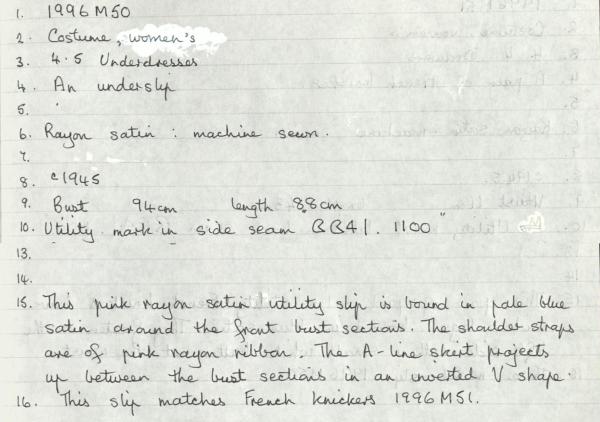 1. 1996 M50
2. Costume, women's
3. 4.5 Underdresses
4. An underslip
5.
6. Rayon satin : machine sewn.
7.
8. c1945
9. Bust 94cm length 88cm
10. Utility mark in side seam CC41. 1100"
13.
14.
15. This pink rayon satin utility slip is bound in pale blue
satin around the front bust sections. The shoulder straps
are of pink rayon ribbon. The A-line skirt projects
up between the bust sections in an inverted V shape.
16. This slip matches French knickers 1996 M51.